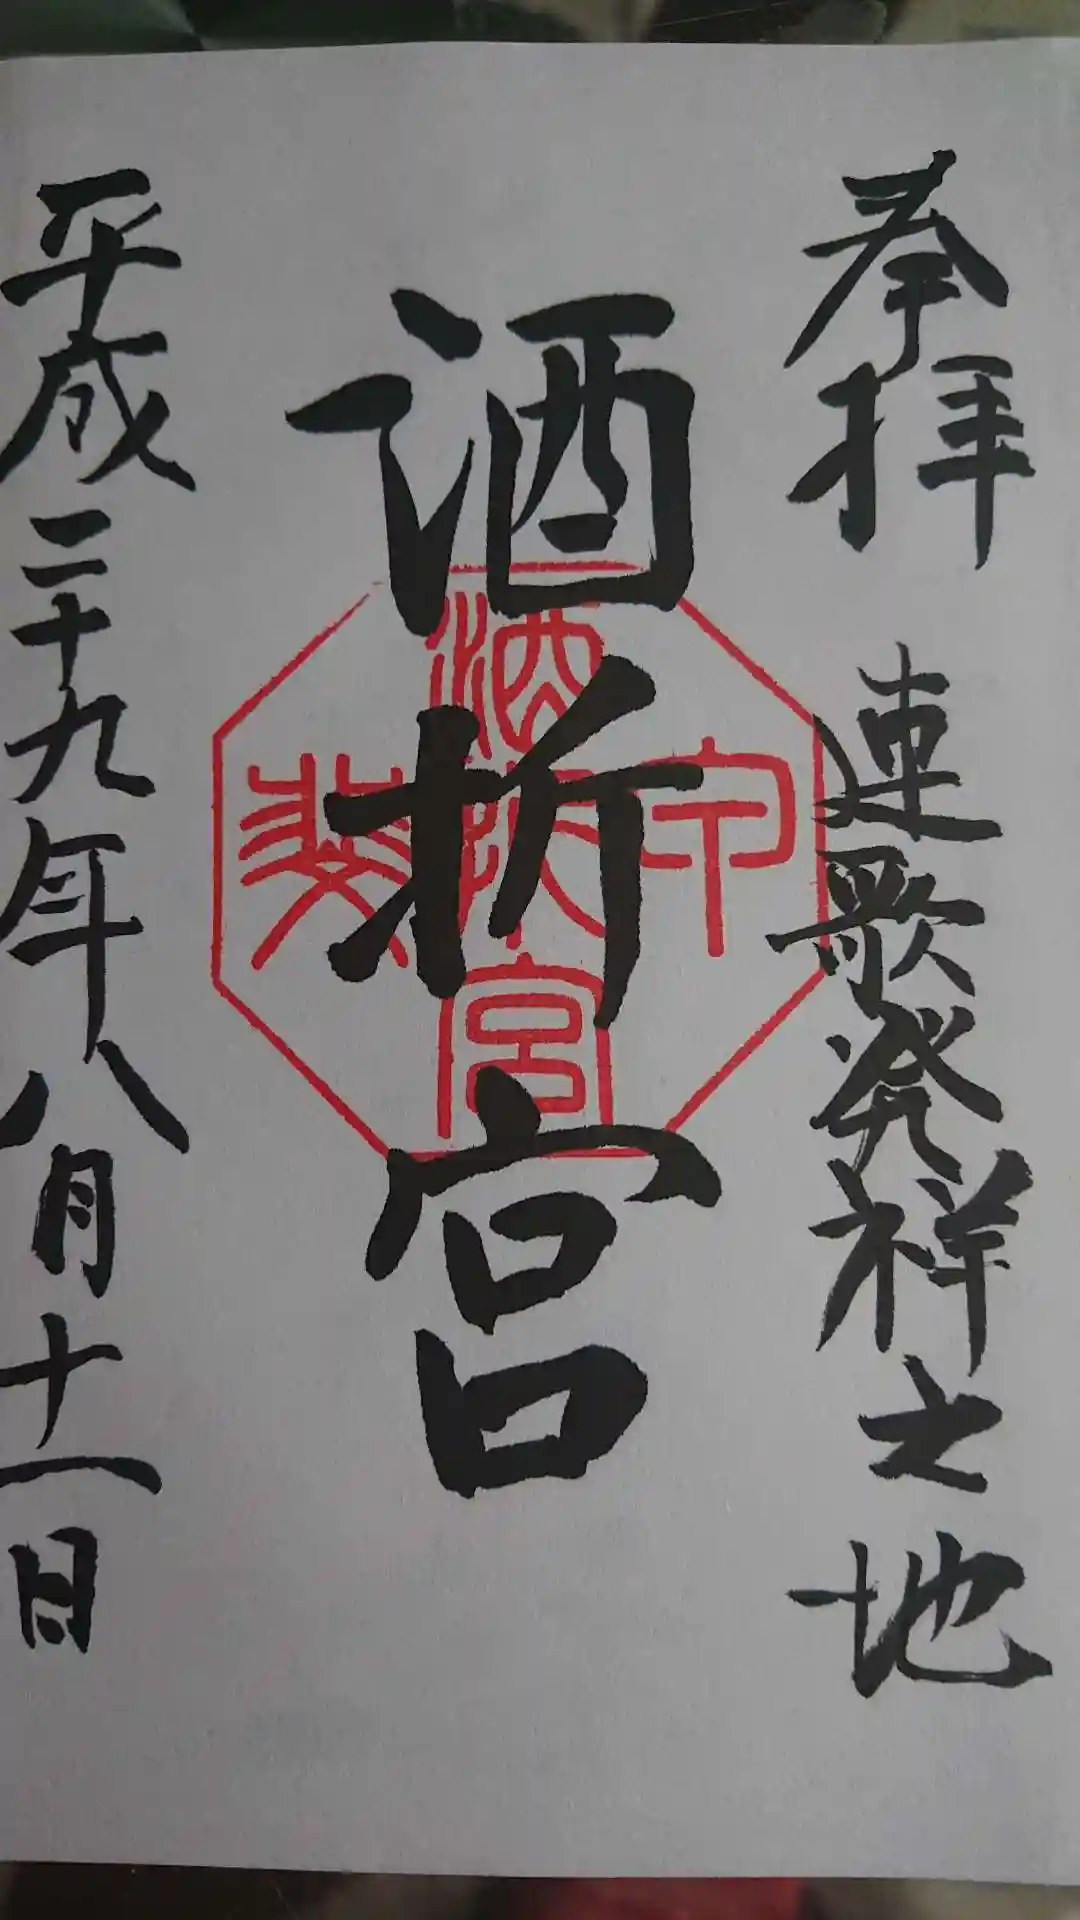 奉拝　連歌発祥之地
酒折宮
平成二十九年八月十一日
酒折宮